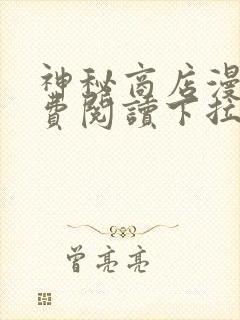 神秘商店漫
費閱讀下拉
曾亮亮